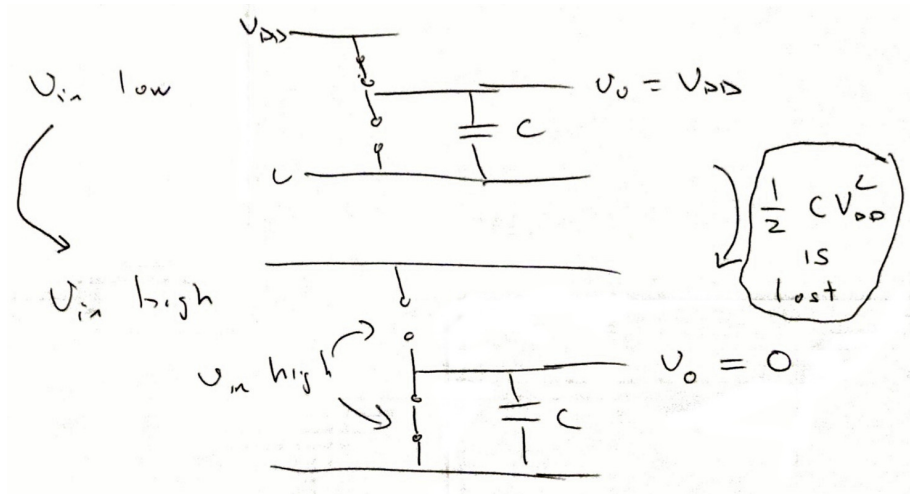 V_DD
v_in low
v_o = V_DD
C
L
1/2 C V_DD^2
is
lost
v_in high
v_in high
v_o = 0
C